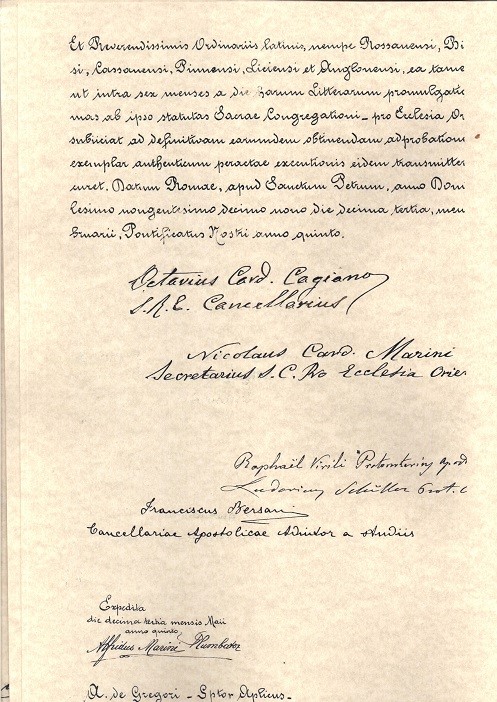 Et Reverendissimis Ordinariis latinis, nempe Rossanensi, Bi
si, Cassanensi,
et Anglonensi, ea tame
ut intra sex menses a die harum Litterarum promulgatio
mas ab ipso statutas Sacrae Congregationi pro Ecclesia Or
subiiciat ad definitivam earumdem obtinendam adprobation
exemplar authenticum peractae executionis eidem transmitter
curet. Datum Romae, apud Sanctum Petrum, anno Dom
lesimo nongentesimo decimo nono die decima tertia, men
bruarii, Pontificatus Nostri anno quinto.
Octavius Card. Cagiano
S. R. E. Cancellarius
Nicolaus Card. Marini
Secretarius S. C. Pro Ecclesia Orien
Raphaël Virili Protonotarius Apost
Ludovicus Schüller Prot. A
Franciscus Bersani
Cancellariae Apostolicae Adiutor a Studiis
Expedita
die decima tertia mensis Maii
anno quinto
Alfridus Marini Plumbator
A. de Gregori - Sptor Aplicus -